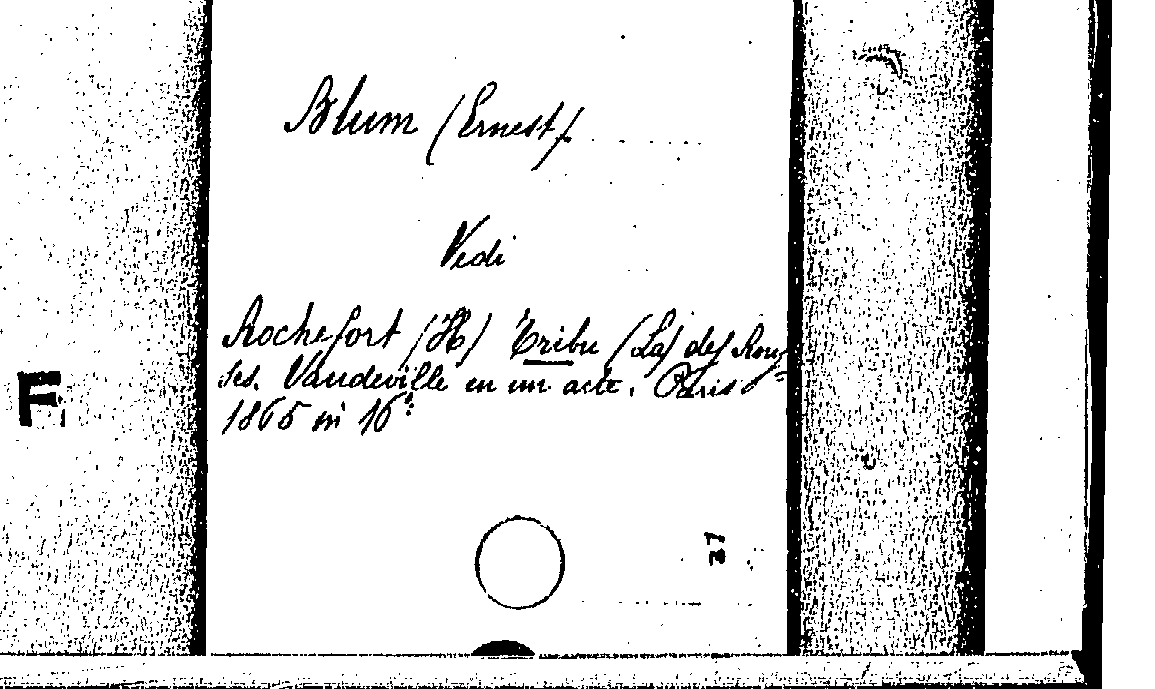 Blum (Ernest).
Vedi
Rochefort (H) Tribu (La) des Rous=
ses. Vaudeville en un acte. Paris
1865 in 16º
F
27